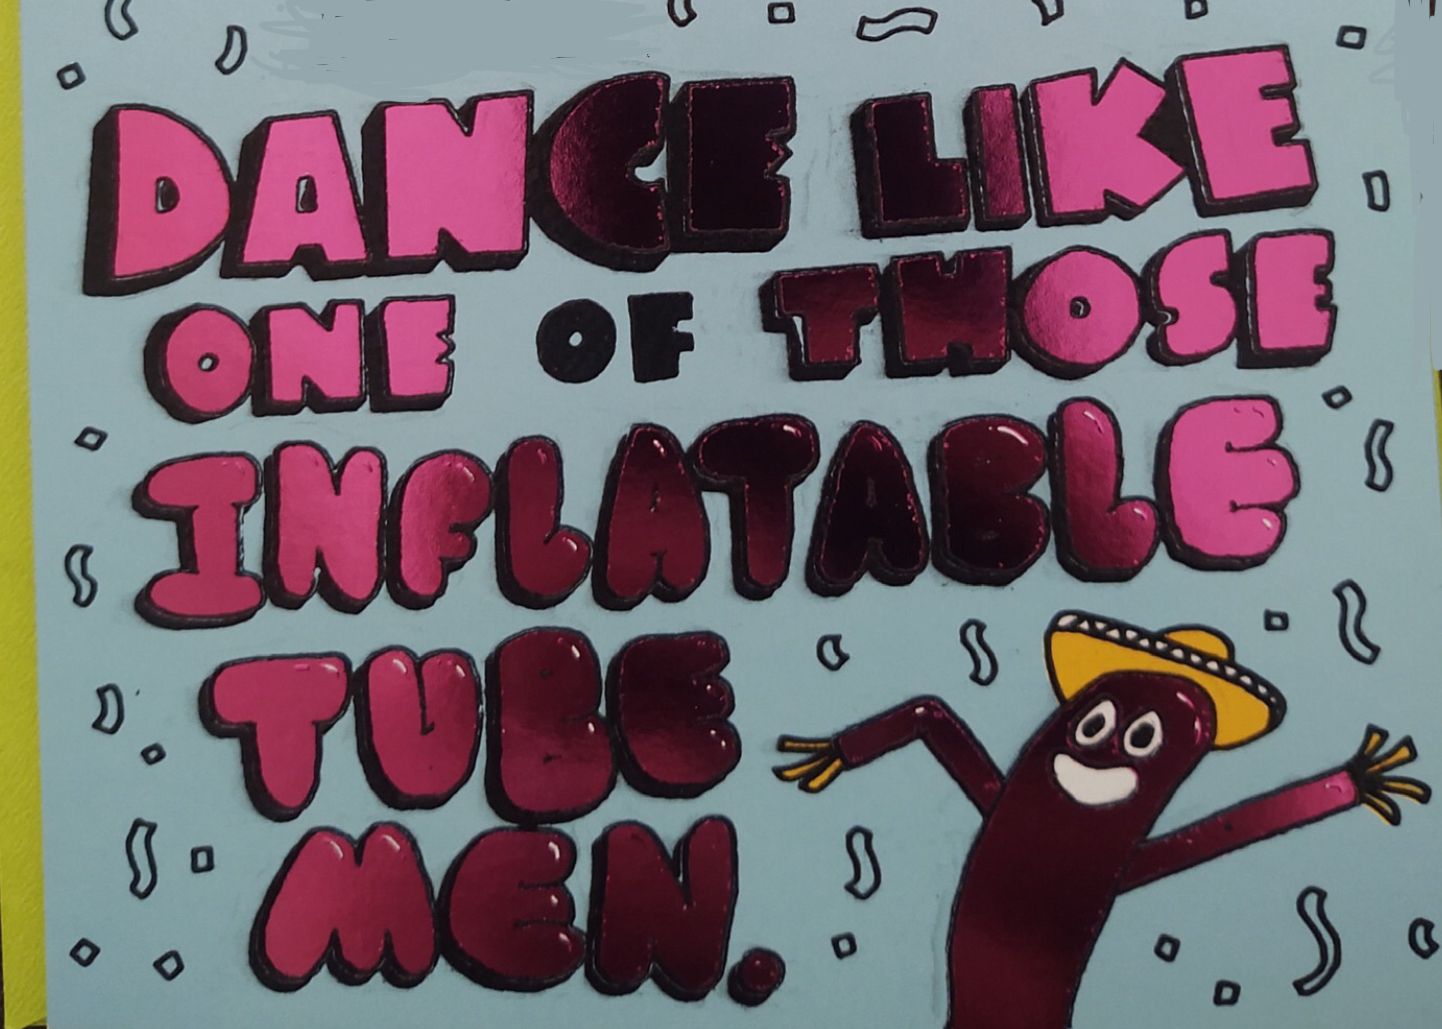 DANCE LIKE
ONE OF THOSE
INFLATABLE
TUBE
MEN.